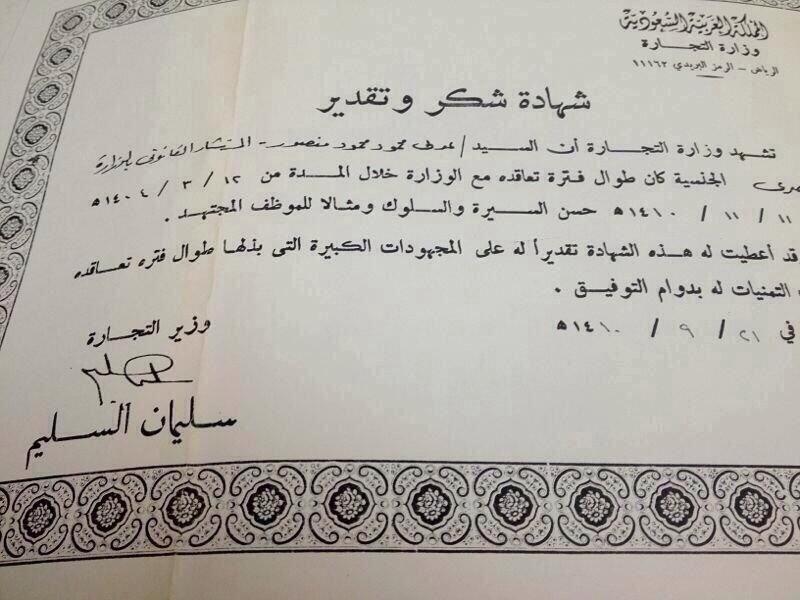 المملكة العربية السعودية
وزارة التجارة
الرياض - الرمز البريدي ١١١٦٢
شهادة شكر وتقدير
تشهد وزارة التجارة أن السيد / محمود محمود منصور - المستشار القانوني بالوزارة
الجنسية كان طوال فترة تعاقده مع الوزارة خلال المدة من ١٢ / ٣ / ١٤٠٤هـ
١١ / ١١ / ١٤١٠هـ حسن السيرة والسلوك ومثالا للموظف المجتهد .
قد أعطيت له هذه الشهادة تقديراً له على المجهودات الكبيرة التى بذلها طوال فتره تعاقده
التمنيات له بدوام التوفيق .
في ٢١ / ٩ / ١٤١٠هـ
وزير التجارة
سليمان السليم